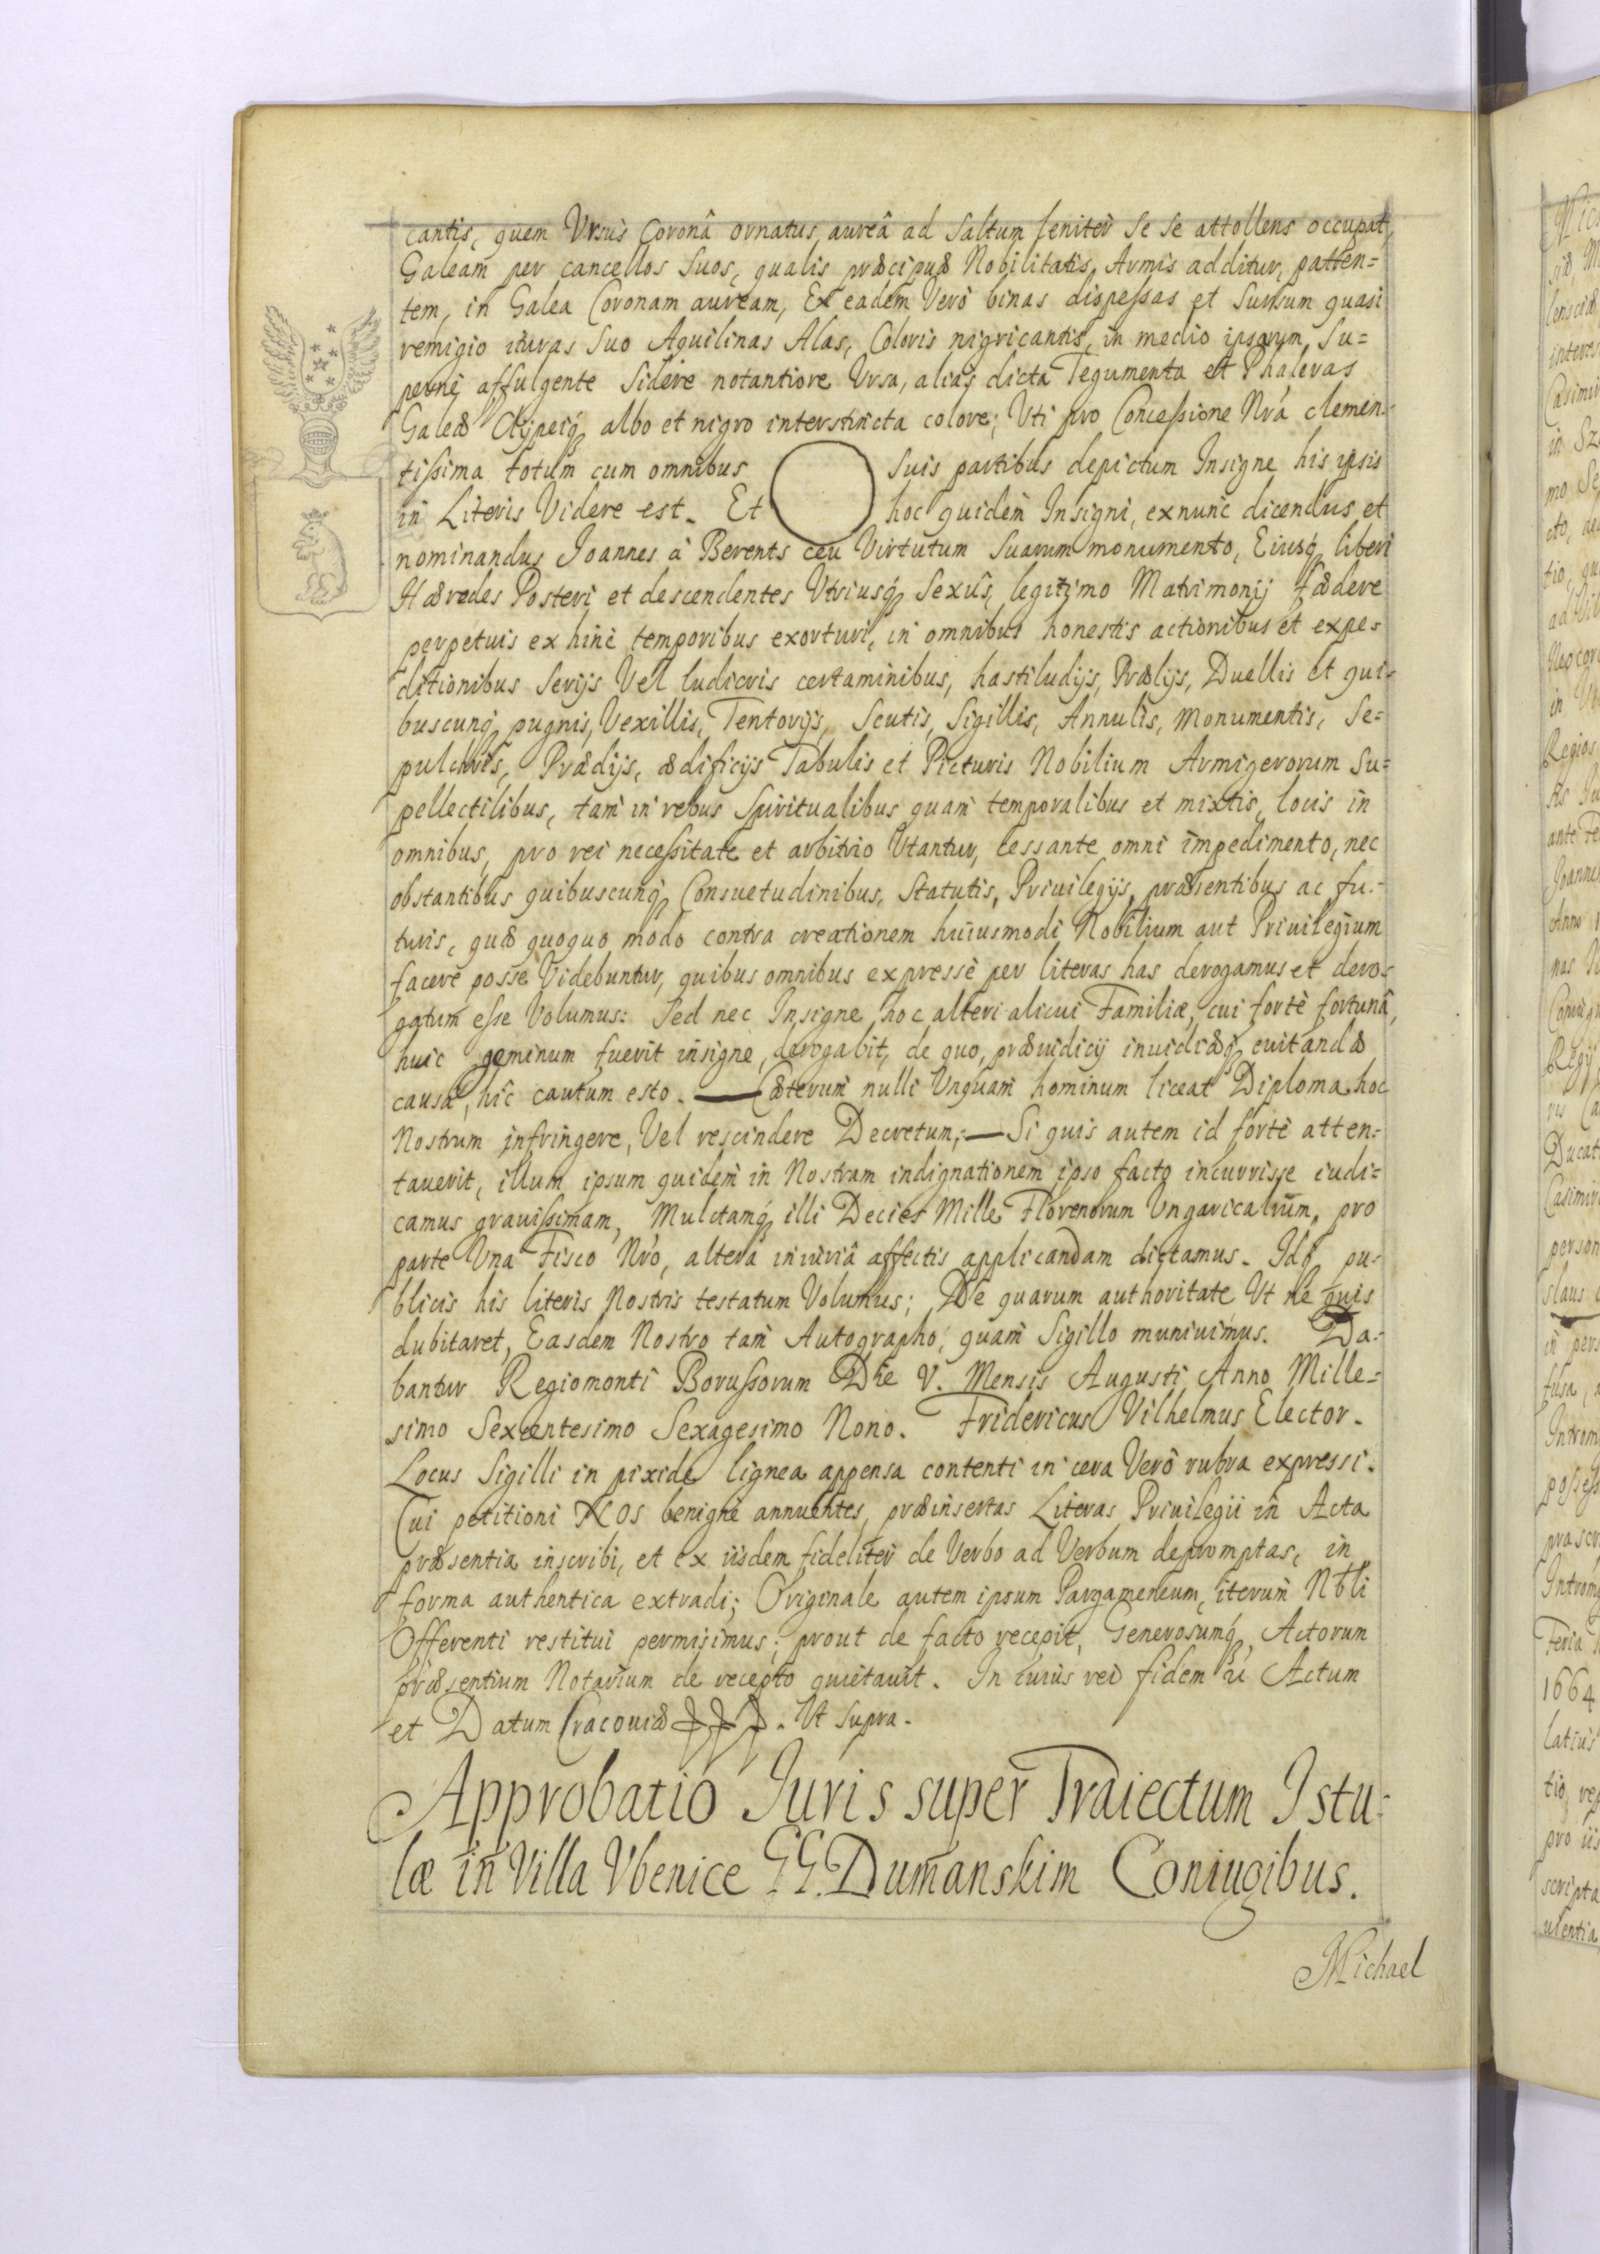 cantis, quem Ursùs Coronâ ornatus, aureâ ad Saltum leniter Se Se attollens occupat,
Galeam per cancellos Suos, qualis præcipuæ Nobilitatis Armis additur, patten=
tem, in Galea Coronam auream, Ex eadem Verò binas dispessas et Sursum quasi
remigio ituras Suo Aquilinas Alas, Coloris nigricantis, in medio ipsarum, Su=
pernè affulgente Sidere notantiore Ursa, alias dicta Tegumenta et Phaleras
Galeæ Clypeiq́ albo et nigro interstincta colore; Uti pro Concessione Nrá clemen-
tissima totum cum omnibus suis partibus depictum Insigne his ipsis
in Literis Videre est. Et hoc quidem Insigni, exnunc dicendus et
nominandus Joannes à Berents ceu Virtutum Suarum monumento, Eiusq́ liberi
Hæredes Posteri et descendentes Utriusq́ Sexûs, legitimo Matrimonij fædere
perpetuis ex hinc temporibus exorturi, in omnibus honestis actionibus et expe=
ditionibus Serijs Vel ludicris certaminibus, hastiludijs, Prælijs, Duellis et qui=
buscunq́ pugnis, Vexillis, Tentorijs, Scutis, Sigillis, Annulis, Monumentis, Se=
pulchris, Prædijs, ædificijs Tabulis et Picturis Nobilium Armigerorum Su=
pellectilibus, tam in rebus Spiritualibus quam temporalibus et mixtis, locis in
omnibus, pro rei necessitate et arbitrio Utantur, cessante omni impedimento, nec
obstantibus quibuscunq́ Consuetudinibus, Statutis, Priuilegijs, præsentibus ac fu-
turis, quæ quoquo modo contra creationem huiusmodi Nobilium aut Priuilegium
facere posse Videbuntur, quibus omnibus expressè per literas has derogamus et dero=
gatum esse Volumus: Sed nec Insigne hoc alteri alicui Familiæ, cui fortè fortunâ,
huic geminum fuerit insigne, derogabit, de quo, præiudicij inuidiæq́ euitandæ
causa, hîc cautum esto. — Cæterum nulli Unquam hominum liceat Diploma hoc
Nostrum infringere, Vel rescindere Decretum; — Si quis autem id fortè atten=
tauerit, illum ipsum quidem in Nostram indignationem ipso facto incurrisse iudi=
camus grauissimam, Mulctamq́ illi Decies Mille Florenorum Ungaricalium, pro
parte Una Fisco Nrò, alterá iniuriâ affectis applicandam dictamus. Idq́ pu=
blicis his literis Nostris testatum Volumus; De quarum authoritate Ut ne quis
dubitaret, Easdem Nostro tam Autographo, quam Sigillo muniuimus. Da=
bantur Regiomonti Borussorum Die V. Mensis Augusti Anno Mille=
simo Sexcentesimo Sexagesimo Nono. Fridericus Vilhelmus Elector.
Locus Sigilli in pixide lignea appensa contenti in cera Verò rubra expressi.
Cui petitioni NOS benignè annuentes, præinsertas Literas Priuilegii in Acta
præsentia inscribi, et ex iisdem fideliter de Verbo ad Verbum depromptas, in
forma authentica extradi; Originale autem ipsum Pargameneum, iterum Nbli
Offerenti restitui permisimus; prout de facto recepit, Generosumq́, Actorum
præsentium Notarium de recepto quietauit. In cuius rei fidem Actum
et Datum Cracouiæ Ut Supra.
Approbatio Juris super Traiectum Istu=
læ in Villa Ubenice GG. Dumanskim Coniugibus.
Michael
1664